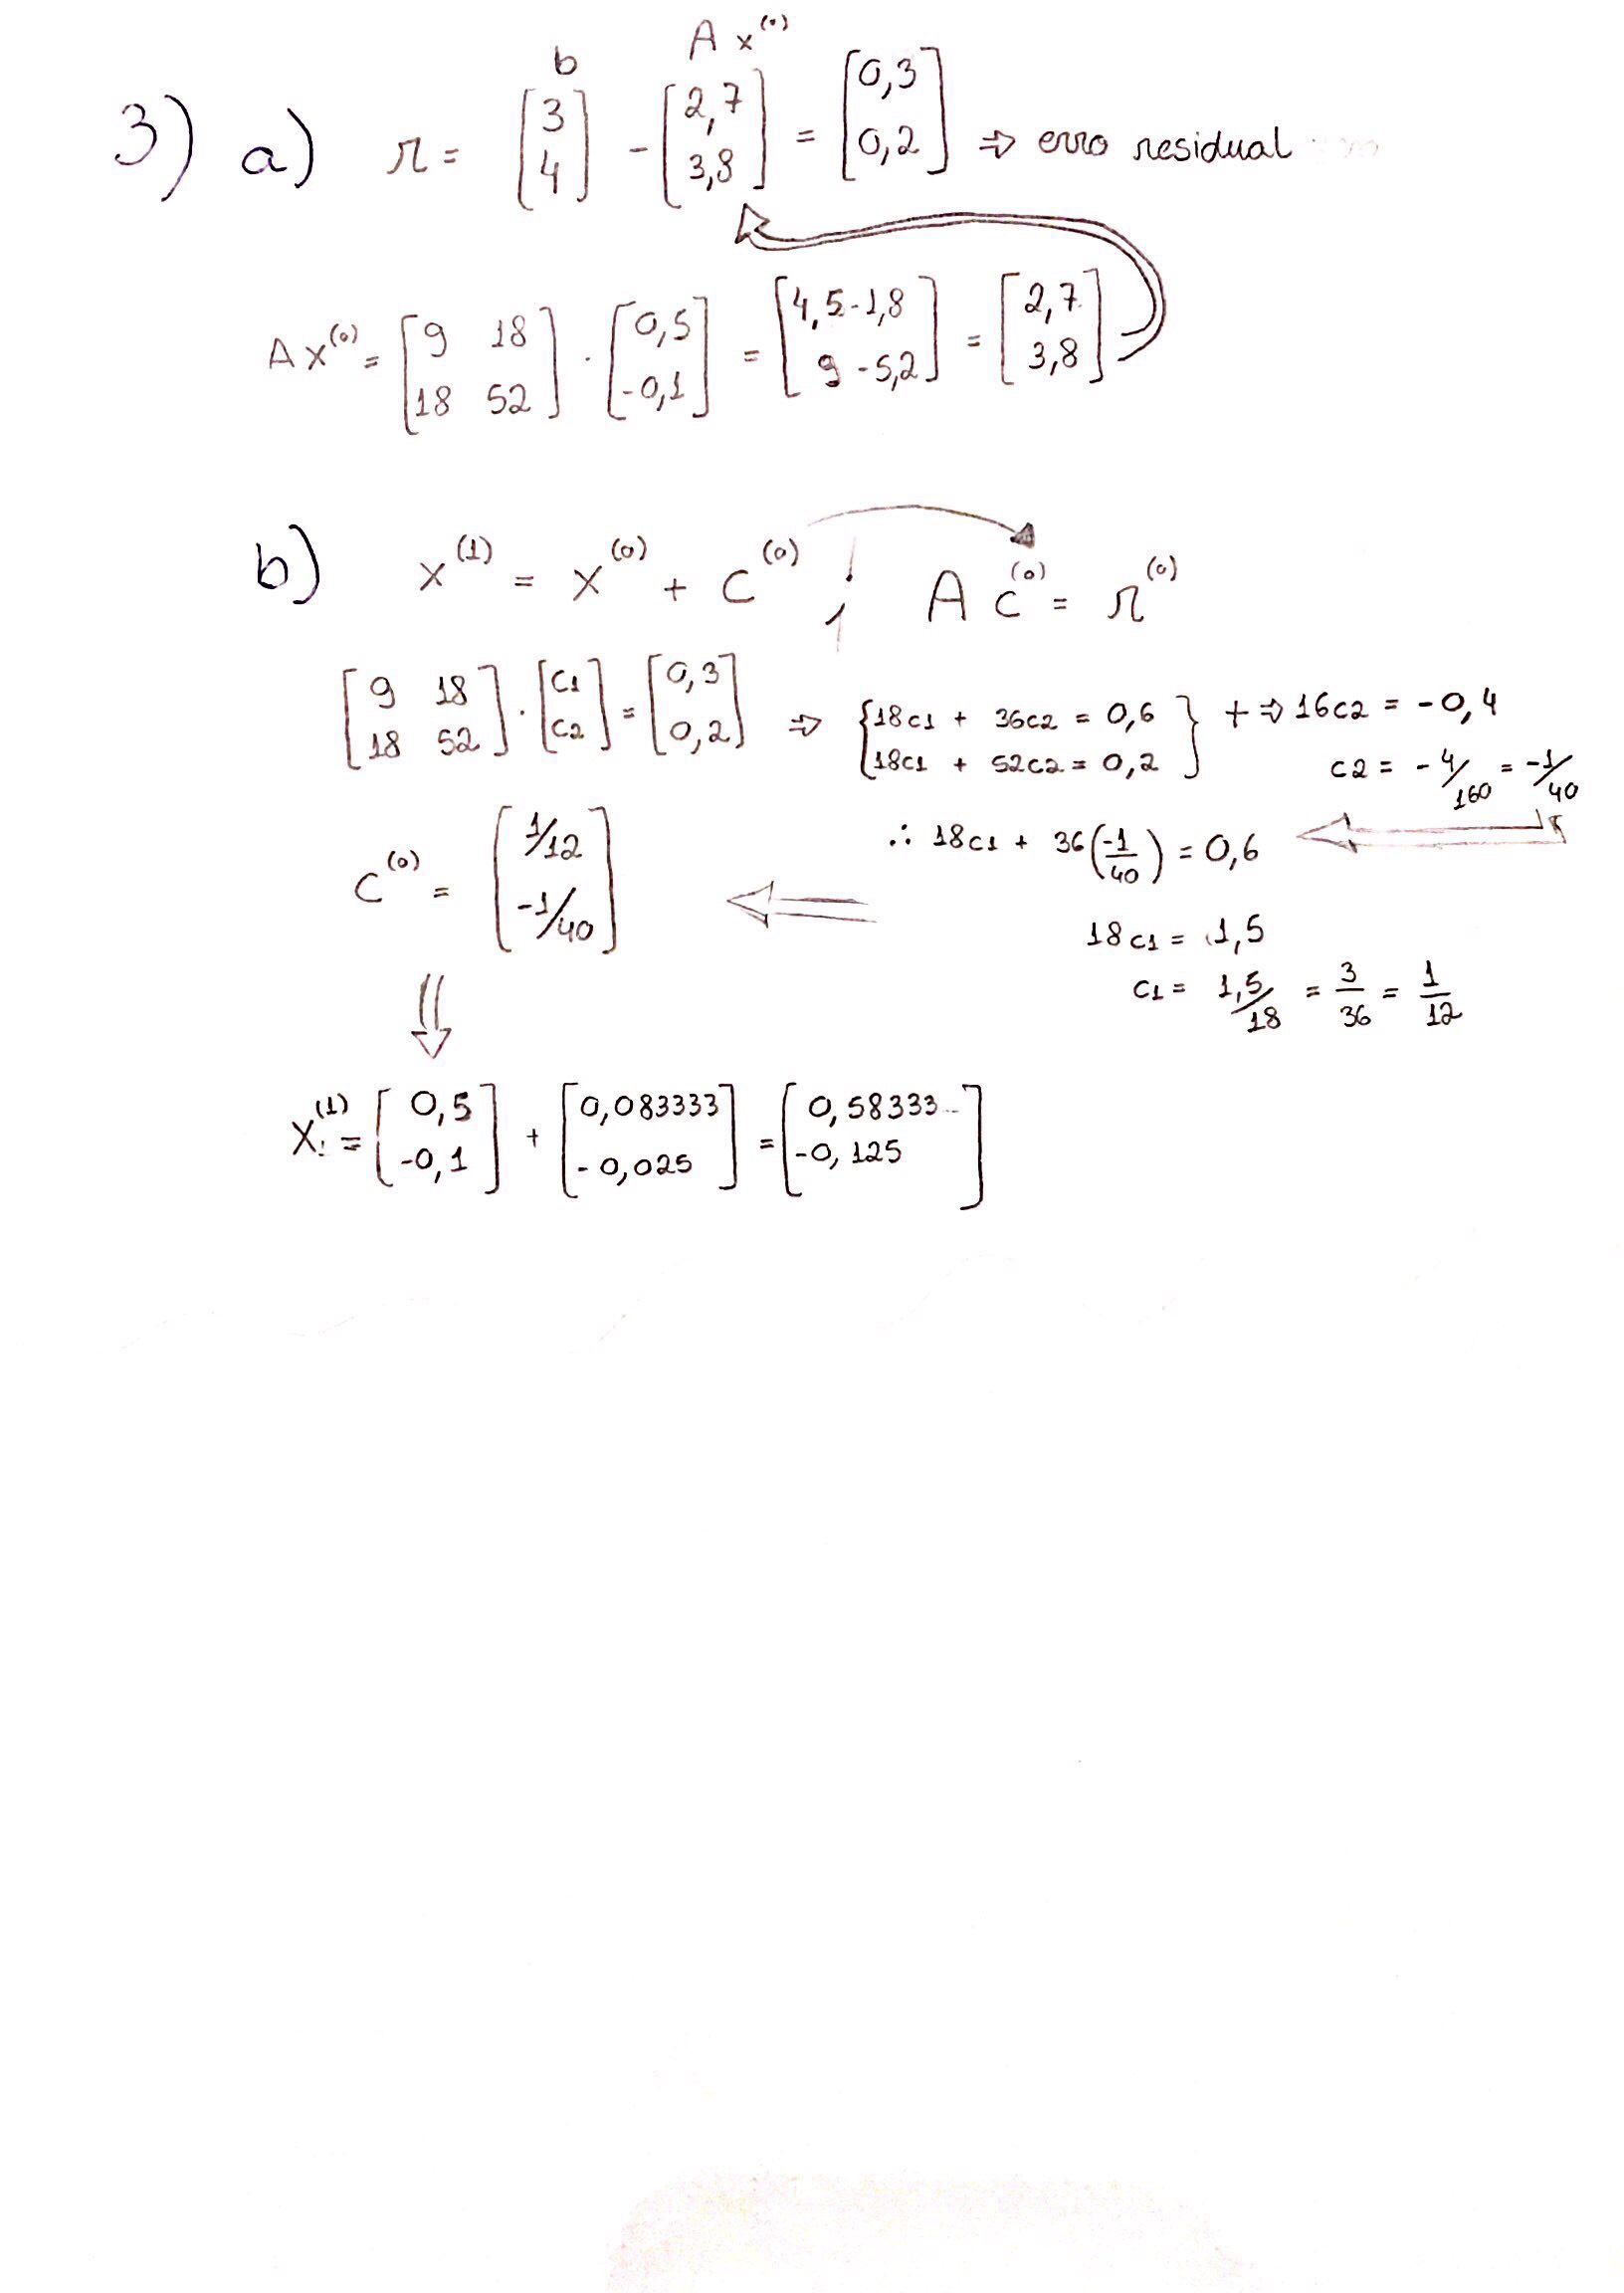 b A x^(0)
3) a) r = [3 4] - [2,7 3,8] = [0,3 0,2] ⇒ erro residual
A x^(0) = [9 18 18 52] · [0,5 -0,1] = [4,5-1,8 9-5,2] = [2,7 3,8]
b) x^(1) = x^(0) + C^(0) ; A c^(0) = r^(0)
[9 18 18 52] · [C1 C2] = [0,3 0,2] ⇒ {18c1 + 36c2 = 0,6 18c1 + 52c2 = 0,2} + ⇒ 16c2 = -0,4
c2 = -4/160 = -1/40
∴ 18c1 + 36(-1/40) = 0,6
C^(0) = [1/12 -1/40]
18c1 = 1,5
c1 = 1,5/18 = 3/36 = 1/12
X^(1) = [0,5 -0,1] + [0,083333 -0,025] = [0,58333... -0,125]